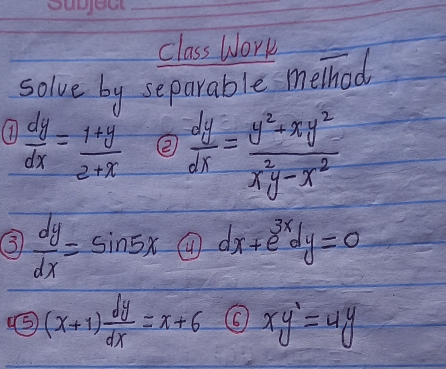 Subject
Class Work
Solve by separable method
① dy/dx = 1+y/2+x ② dy/dx = y²+xy²/x²y-x²
③ dy/dx = sin5x ④ dx+e³ˣdy=0
⑤ (x+1)dy/dx = x+6 ⑥ xy'=4y